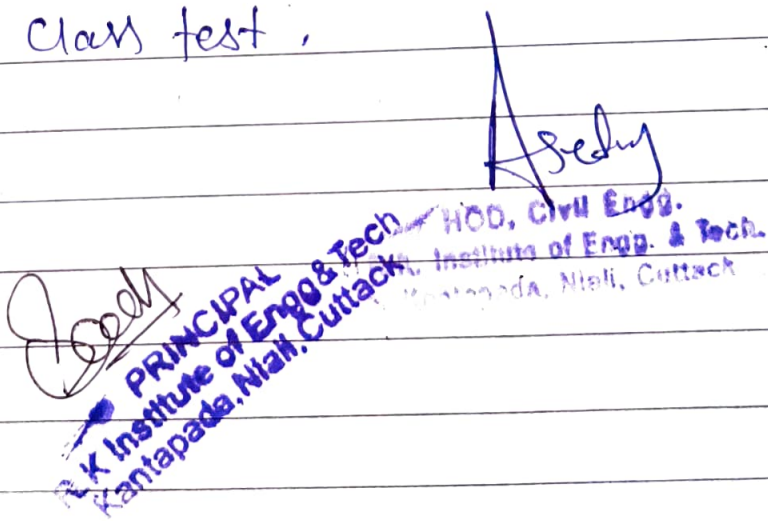 Class test.
HOD, Civil Engg.
Institute of Engg. & Tech.
Niali, Cuttack
PRINCIPAL
K Institute of Engg & Tech
Kantapada, Niali, Cuttack